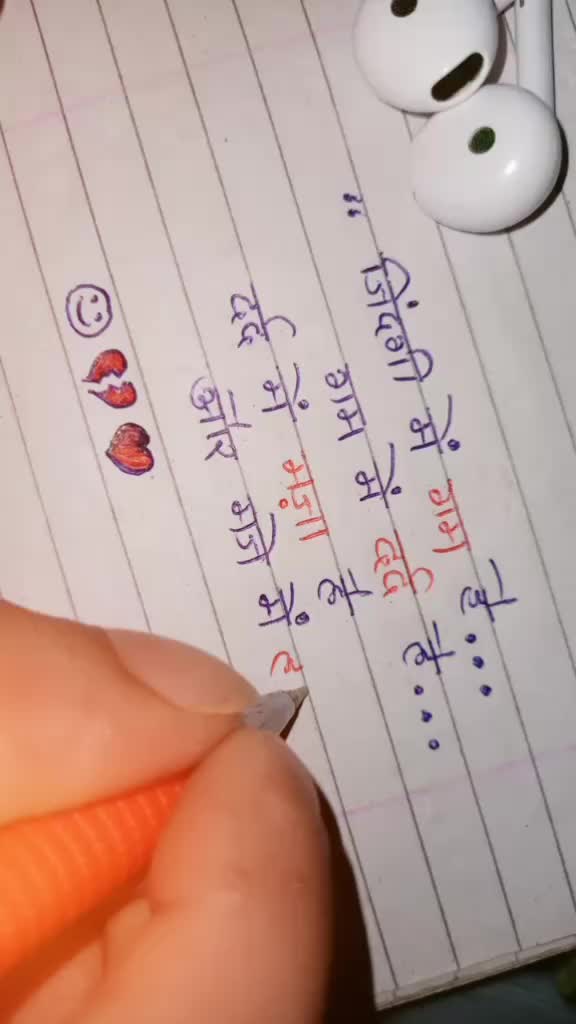 “ ज़िंदगी में गम है...
गम में दर्द है...
दर्द में मज़ा है
और मजे में